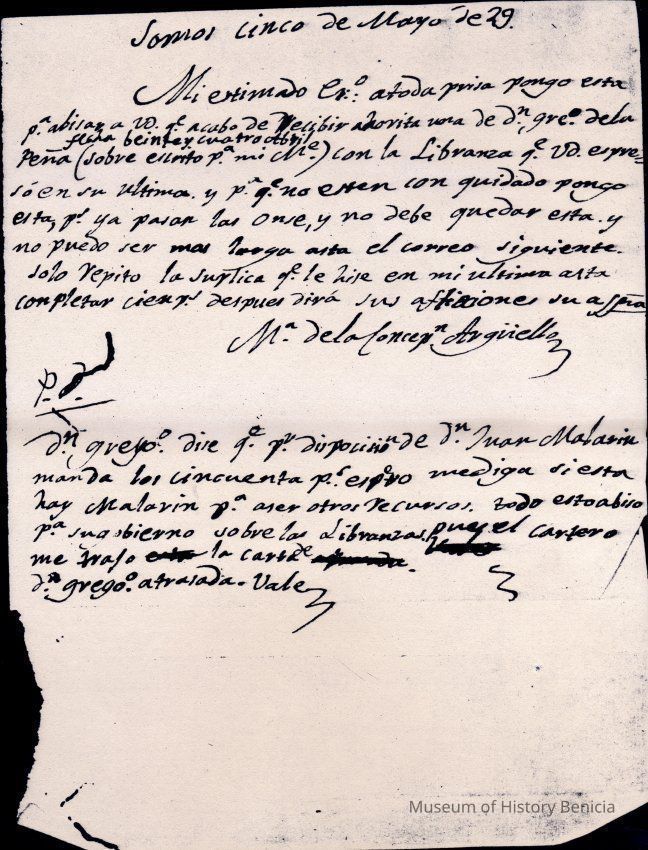 Somos Cinco de Mayo de 29.
Mi estimado Er.º atoda prisa pongo esta
p.ª abisar a VD. q.e acabo de Recibir ahorita una de d.n greg.º dela
fecha beinteycuatro Abril
Peña (sobre escrito p.ª mi Me.) con la Libranza q.e VD. espre-
só en su ultima. y p.ª q.e no esten con quidado pongo
esta, p.s ya pasan las onse, y no debe quedar esta. y
no puedo ser mas larga asta el correo siguiente.
solo repito la suplica q.e le hise en mi ultima asta
completar cien p.s despues dirá sus aflixiones su a
M.ª dela Concep.n Argüello
P. d.
D.n grego.º dise q.e p.r disposision de d.n Juan Malarin
manda los cincuenta p.s espero mediga si esta
hay Malarin p.ª aser otros recursos. todo esto abiso
p.ª su gobierno sobre las Libranzas. pues el cartero
me trajo la carta de
d.n grego.º atrasada. Vale
Museum of History Benicia